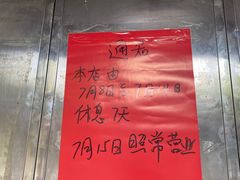 通知
本店由
7月8日至7月14日
休息7天
7月15日照常营业